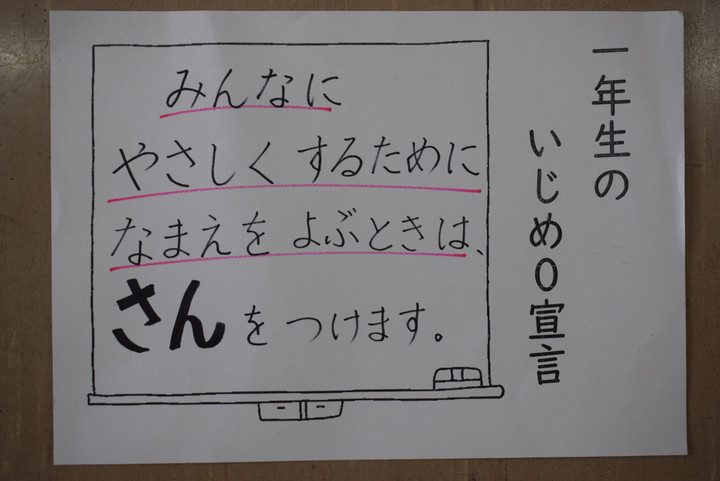 一年生の
いじめ0宣言
みんなに
やさしく するために
なまえを よぶときは、
さんを つけます。